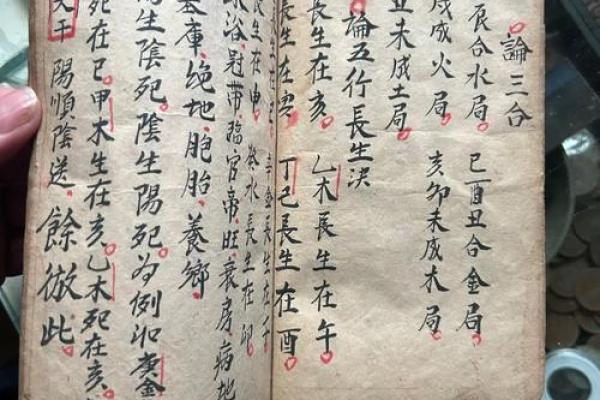 論三合
辰合水局。巳酉丑合金局。
戌成火局。亥卯未成木局。
丑未成土局。
論五行長生決
長生在亥。乙木長生在午。
長生在寅。丁己長生在酉。
生在巳。辛金長生在子
長生在申。癸水長生在卯
沐浴、冠帶、臨官、帝旺、衰房、病地
墓庫、絕地、胞胎、養鄉、
生陰死。陰生陽死。為例如庚金
死在巳。甲木生在亥。乙木死在亥。
天干 陽順陰送。餘倣此。